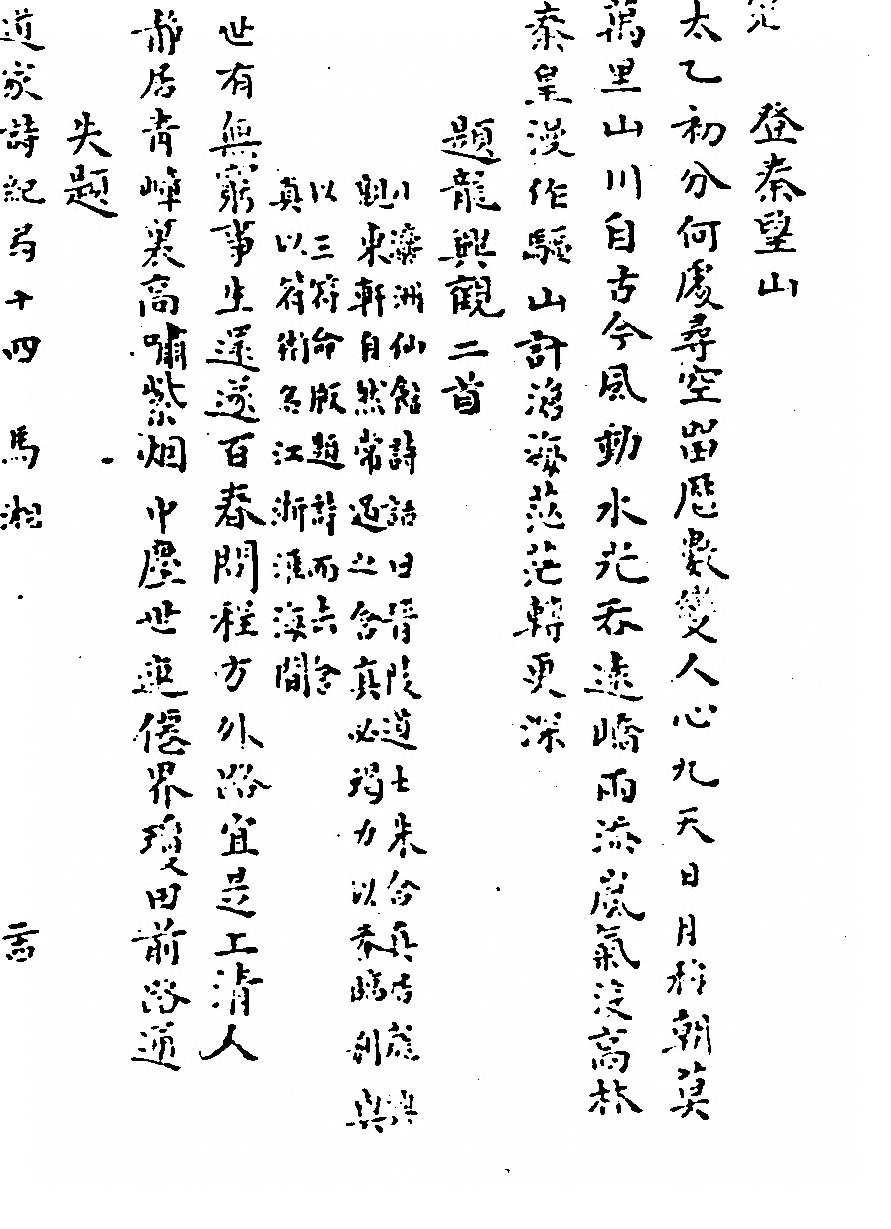 登秦望山
太乙初分何處尋空留厯數變人心九天日月移朝莫
萬里山川自古今風動水光吞遠嶠雨添嵐氣没高林
秦皇漫作驅山計滄海茫茫轉更深
題龍興觀二首
瀛洲仙館詩話曰晋陵道士朱含真居龍興
觀来軒自然常過之含真必竭力以奉臨别與
以三符命版題詩而去含
真以符術名江浙淮海間
世有無窮事生還遂百春問程方外路宜是上清人
静居青嶂裏高嘯紫烟中塵世連僊界瓊田前路通
失題
道家詩紀苐十四 馬湘